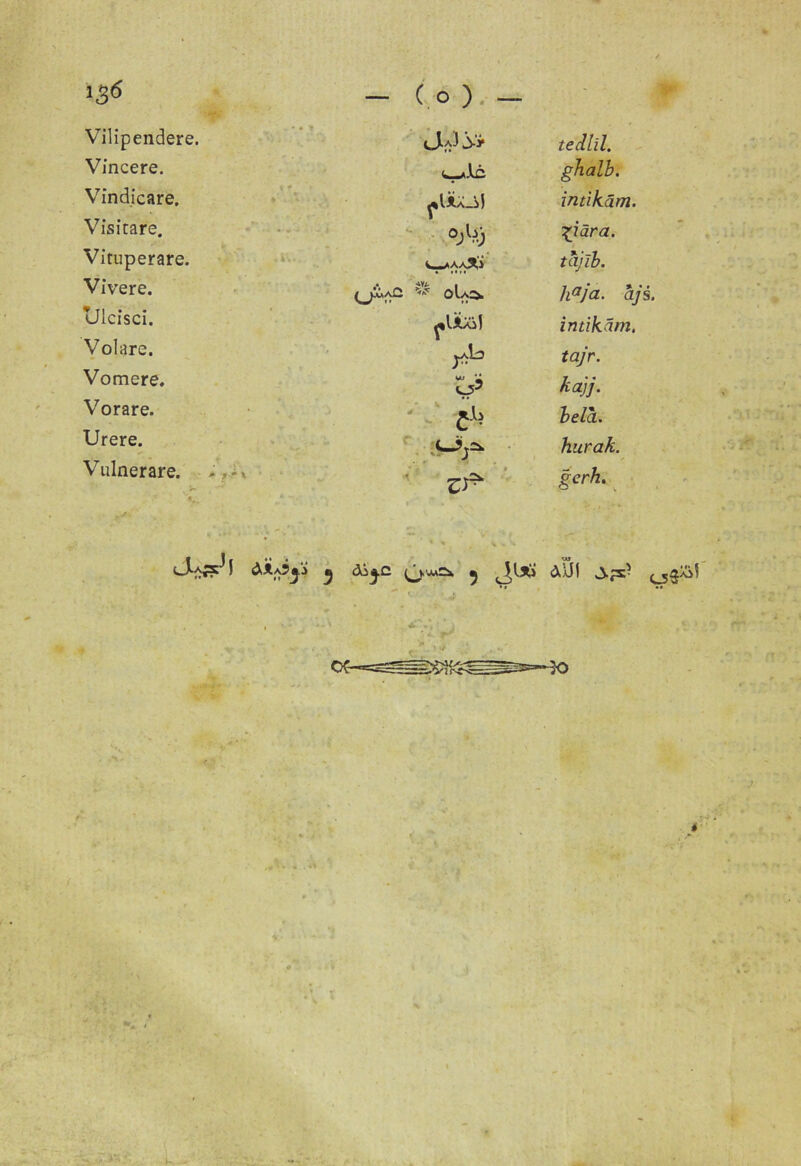 136 — ( o ) —
Vilipendere. تذليل tedlil.
Vincere. غلب ghalb.
Vindicare. انتقام intikām.
Visitare. زيارة ʒiāra.
Vituperare. تعييب tàjīb.
Vivere. حياة * عيش hªja. àjš.
Ulcisci. انتقام intikām.
Volare. طير tajr.
Vomere. قيّ kajj.
Vorare. بلع belà.
Urere. حرق hurak.
Vulnerare. جرح ǧerh.
انتهي بحمد اللّه تعالي و حسن عونه و توفيقه الجميل